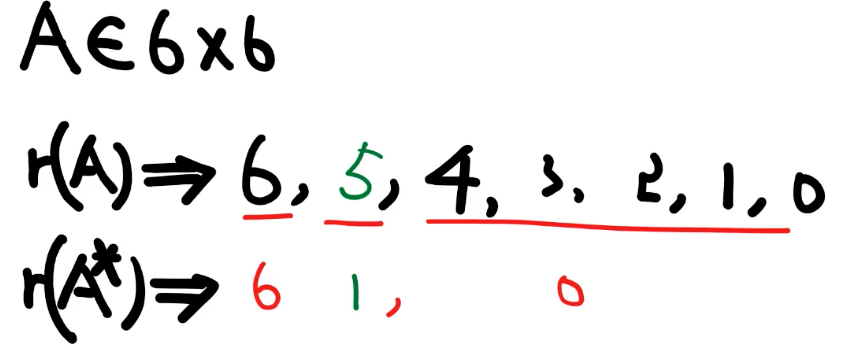 A∈6×6
r(A)⇒6, 5, 4, 3, 2, 1, 0
r(A*)⇒6 1, 0